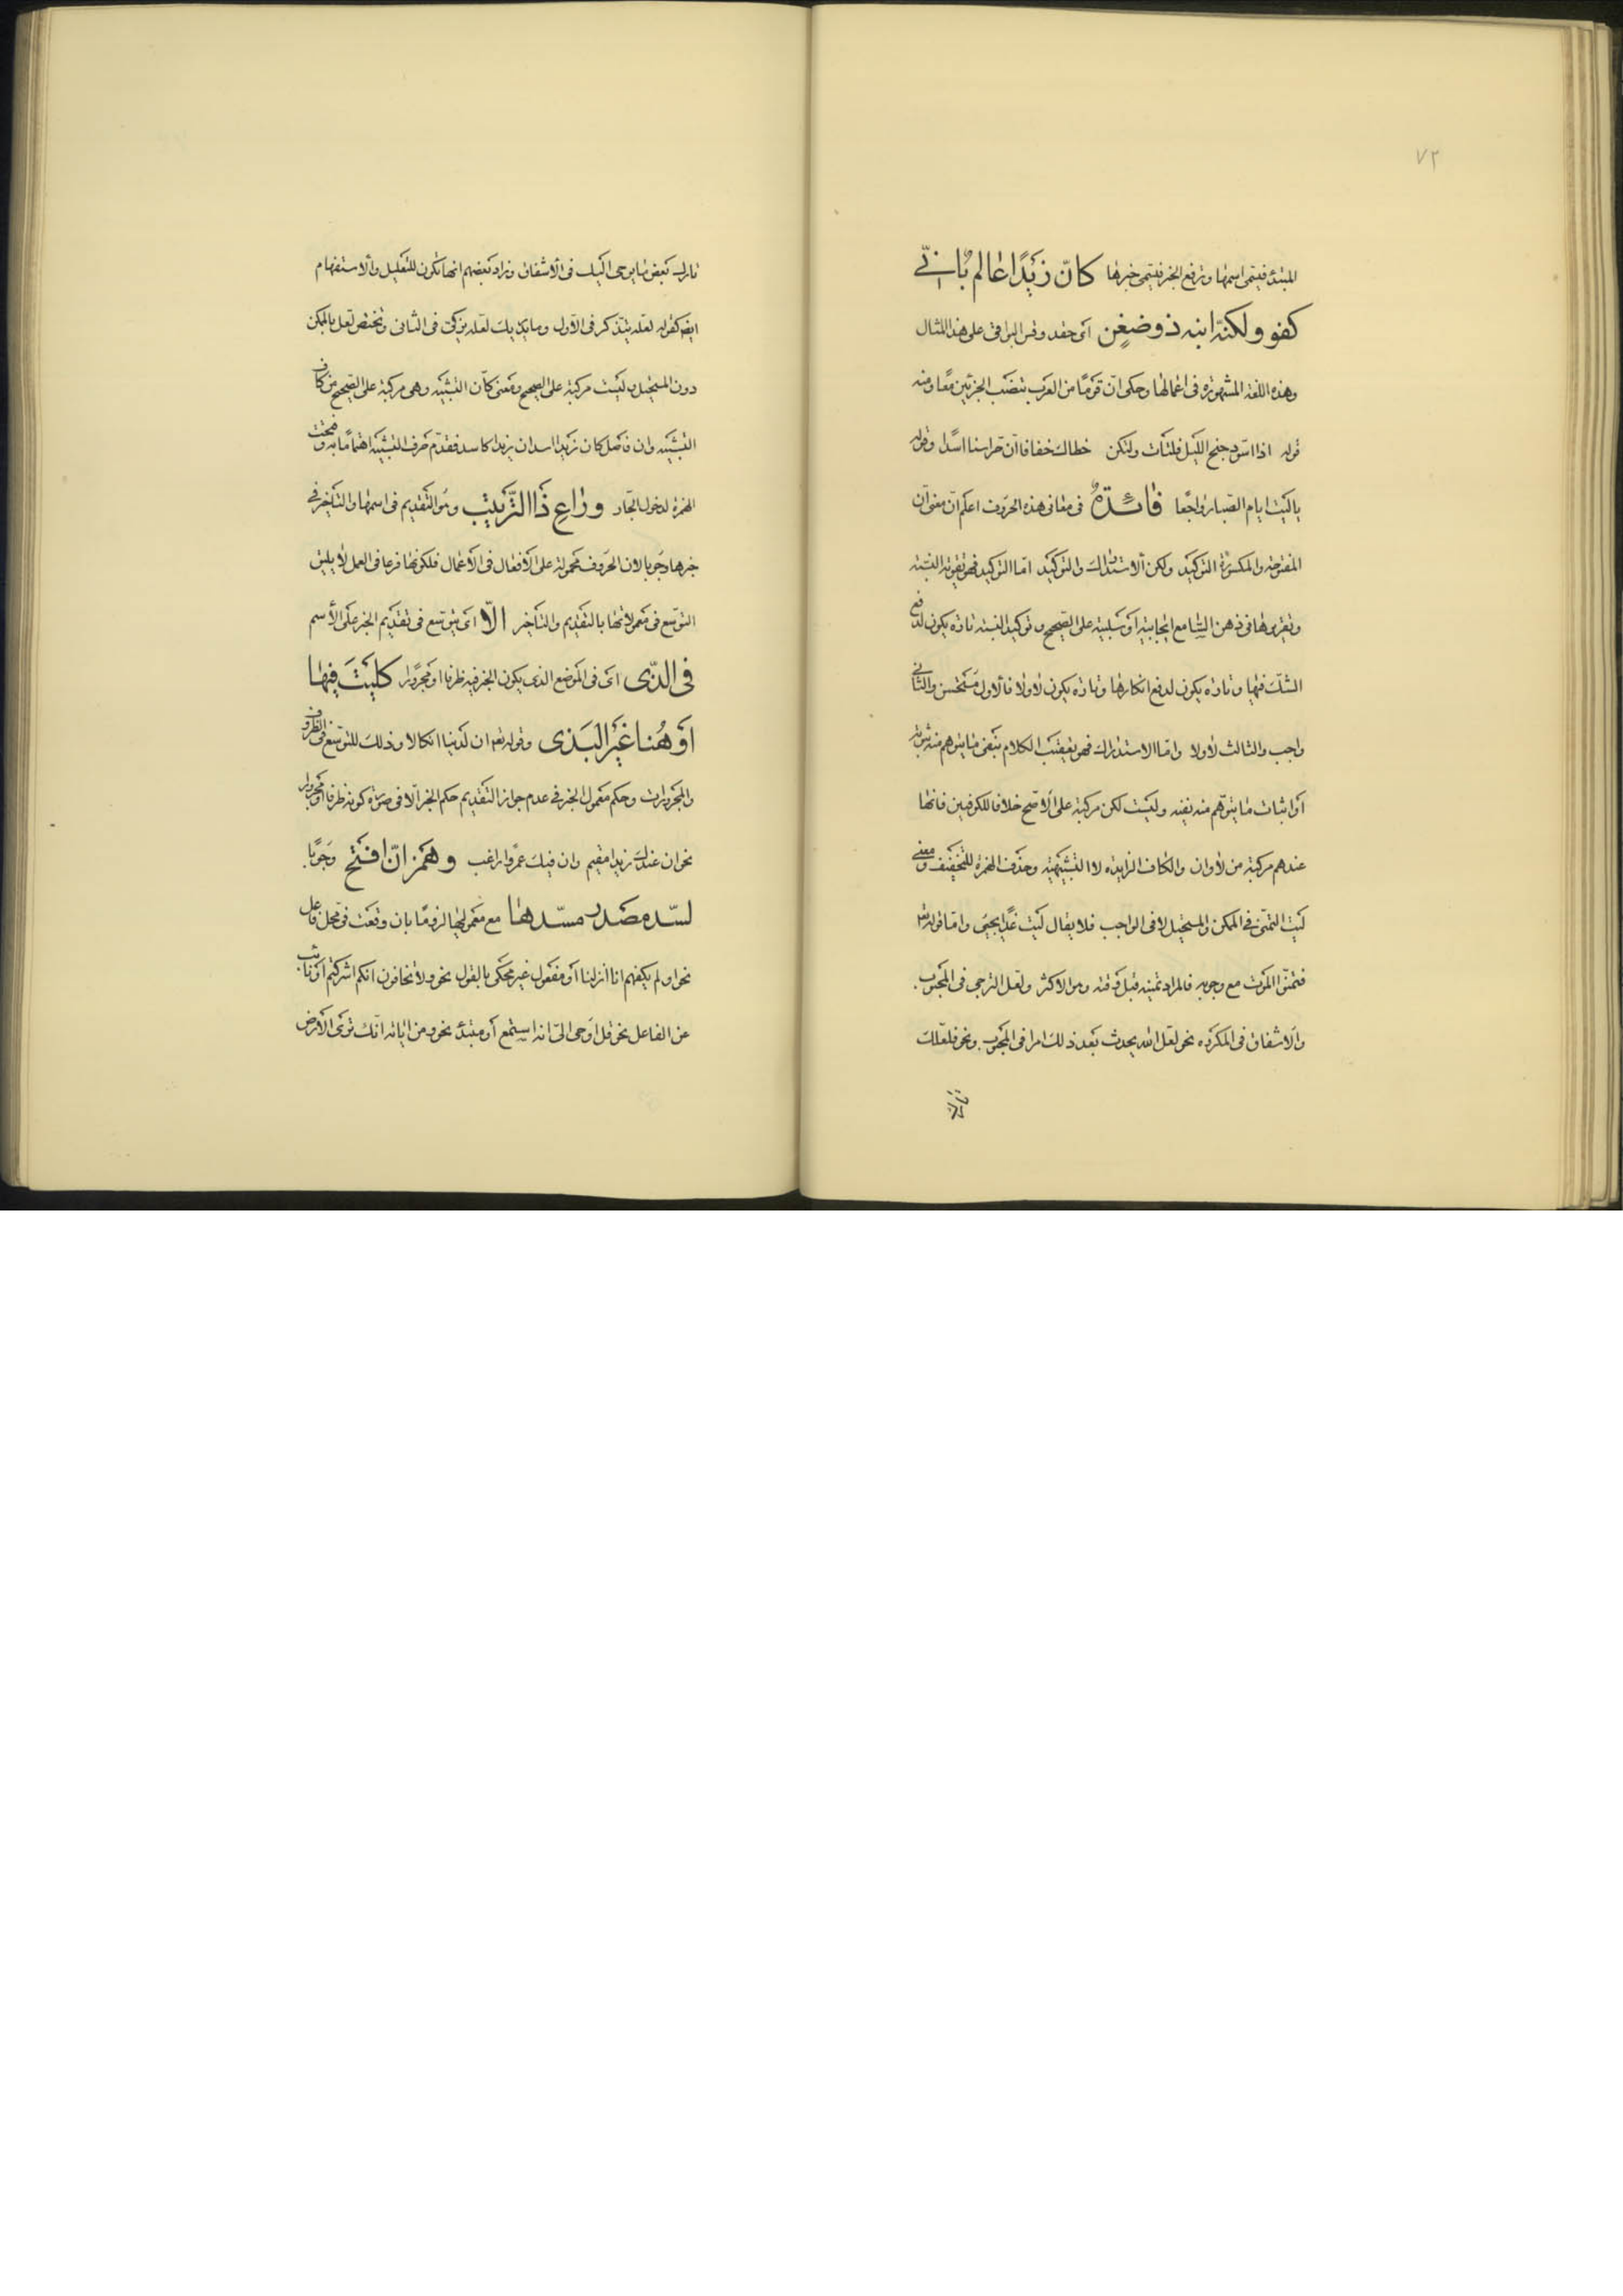 ٧٢
المبتدء فيتمى اسمها وترفع الخبر فيتمى خبرها كانّ زيدًا عالم بانّي
كفو ولكنّ ابنه ذو ضغنٍ اى حقد وقس البواقى على هذا المثال
وهذه اللغة المشهورة فى اعمالها وحكى انّ قومًا من العرب بنصب الجزئين معًا ومنه
قوله اذا اسّود جنح الليل فلتأت ولتكن خطاك خفافا انّ حراسنا اسدا وقوله
ياليت ايام الصبا رواجعًا فائدة فى معانى هذه الحروف اعلم انّ معنى انّ
المفتوحة والمكسورة التوكيد ولكن الاستدراك والتوكيد امّا التوكيد فهو تقوية النسبة
وتقريرها فى ذهن السامع ايجابية او سلبية على الصحيح وتوكيد النسبة تارة يكون لدفع
الشكّ فيها وتارة يكون لدفع انكارها وتارة يكون لاولا فالاول مستحسن والثانى
واجب والثالث لاولا وامّا الاستدراك فهو تعقيب الكلام بنفى ما يتوهم منه ثبوته
او اثبات ما يتوهّم منه نفيه وليست لكن مركبة على الاصح خلافا للكوفيين فانها
عندهم مركبة من لا وان والكاف الزايدة لا التشبيهية وحذف الهمزة للتخفيف ومعنى
ليت التمنّى فى الممكن والمستحيل لا فى الواجب فلا يقال ليت غدًا يجيئ وامّا قوله تع
فتمنّوا الموت مع وجوبه فالمراد تمنيه قبل وقته وهو الاكثر ولعل الترجى فى المحبوب
والاشفاق فى المكروه نحو لعل الله يحدث بعد ذلك امرا فى المحبوب ونحو فلعلك
تارك بعض ما يوحى اليك فى الاشفاق وزاد بعضهم انها تكون للتعليل والاستفهام
ايضً كقوله لعله يتذكر فى الاول وما يدريك لعله يزكى فى الثانى وتختص لعل بالممكن
دون المستحيل وليست مركبة على الصحيح ومعنى كانّ التشبيه وهى مركبة على الصحيح من كاف
التشبيه وان فاصل كان زيدا اسد ان زيدا كاسد فقدّم حرف التشبيه اهتمامًا به وفتحت
الهمزة لدخول الجّار وراعِ ذا التّرتيب وهو التقديم فى اسمها والتاخير فى
خبرها وجوبا لان الحروف محمولة على الافعال فى الاعمال فلكونها فرعا فى العمل لا يليق
التوسع فى معمولاتها بالتقديم والتاخير الّا اى يتوسع فى تقديم الخبر على الاسم
فى الذّى اى فى الموضع الذى يكون الخبر فيه ظرفا او مجرورا كليت فيها
او هنا غير البذى وقوله تعم ان لدينا انكالا وذلك للتوسع فى الظروف
والمجرورات وحكم معمول الخبر فى عدم جواز التقديم حكم الخبر الّا فى صورة كونه ظرفا او مجرورا
نحو ان عندك زيدا مقيم وان فيك عمروا راغب وهمز انّ افتح وجوبًا
لسّد مصدر مسّدها مع معموليها لزومًا بان وقعت فى محل فاعل
نحو اولم يكفهم انا انزلنا او مفعول غير محكى بالقول نحو ولا تخافون انكم اشركتم او نائب
عن الفاعل نحو قل اوحى الىّ انه استمع او مبتدء نحو ومن اياته انّك ترى الارض